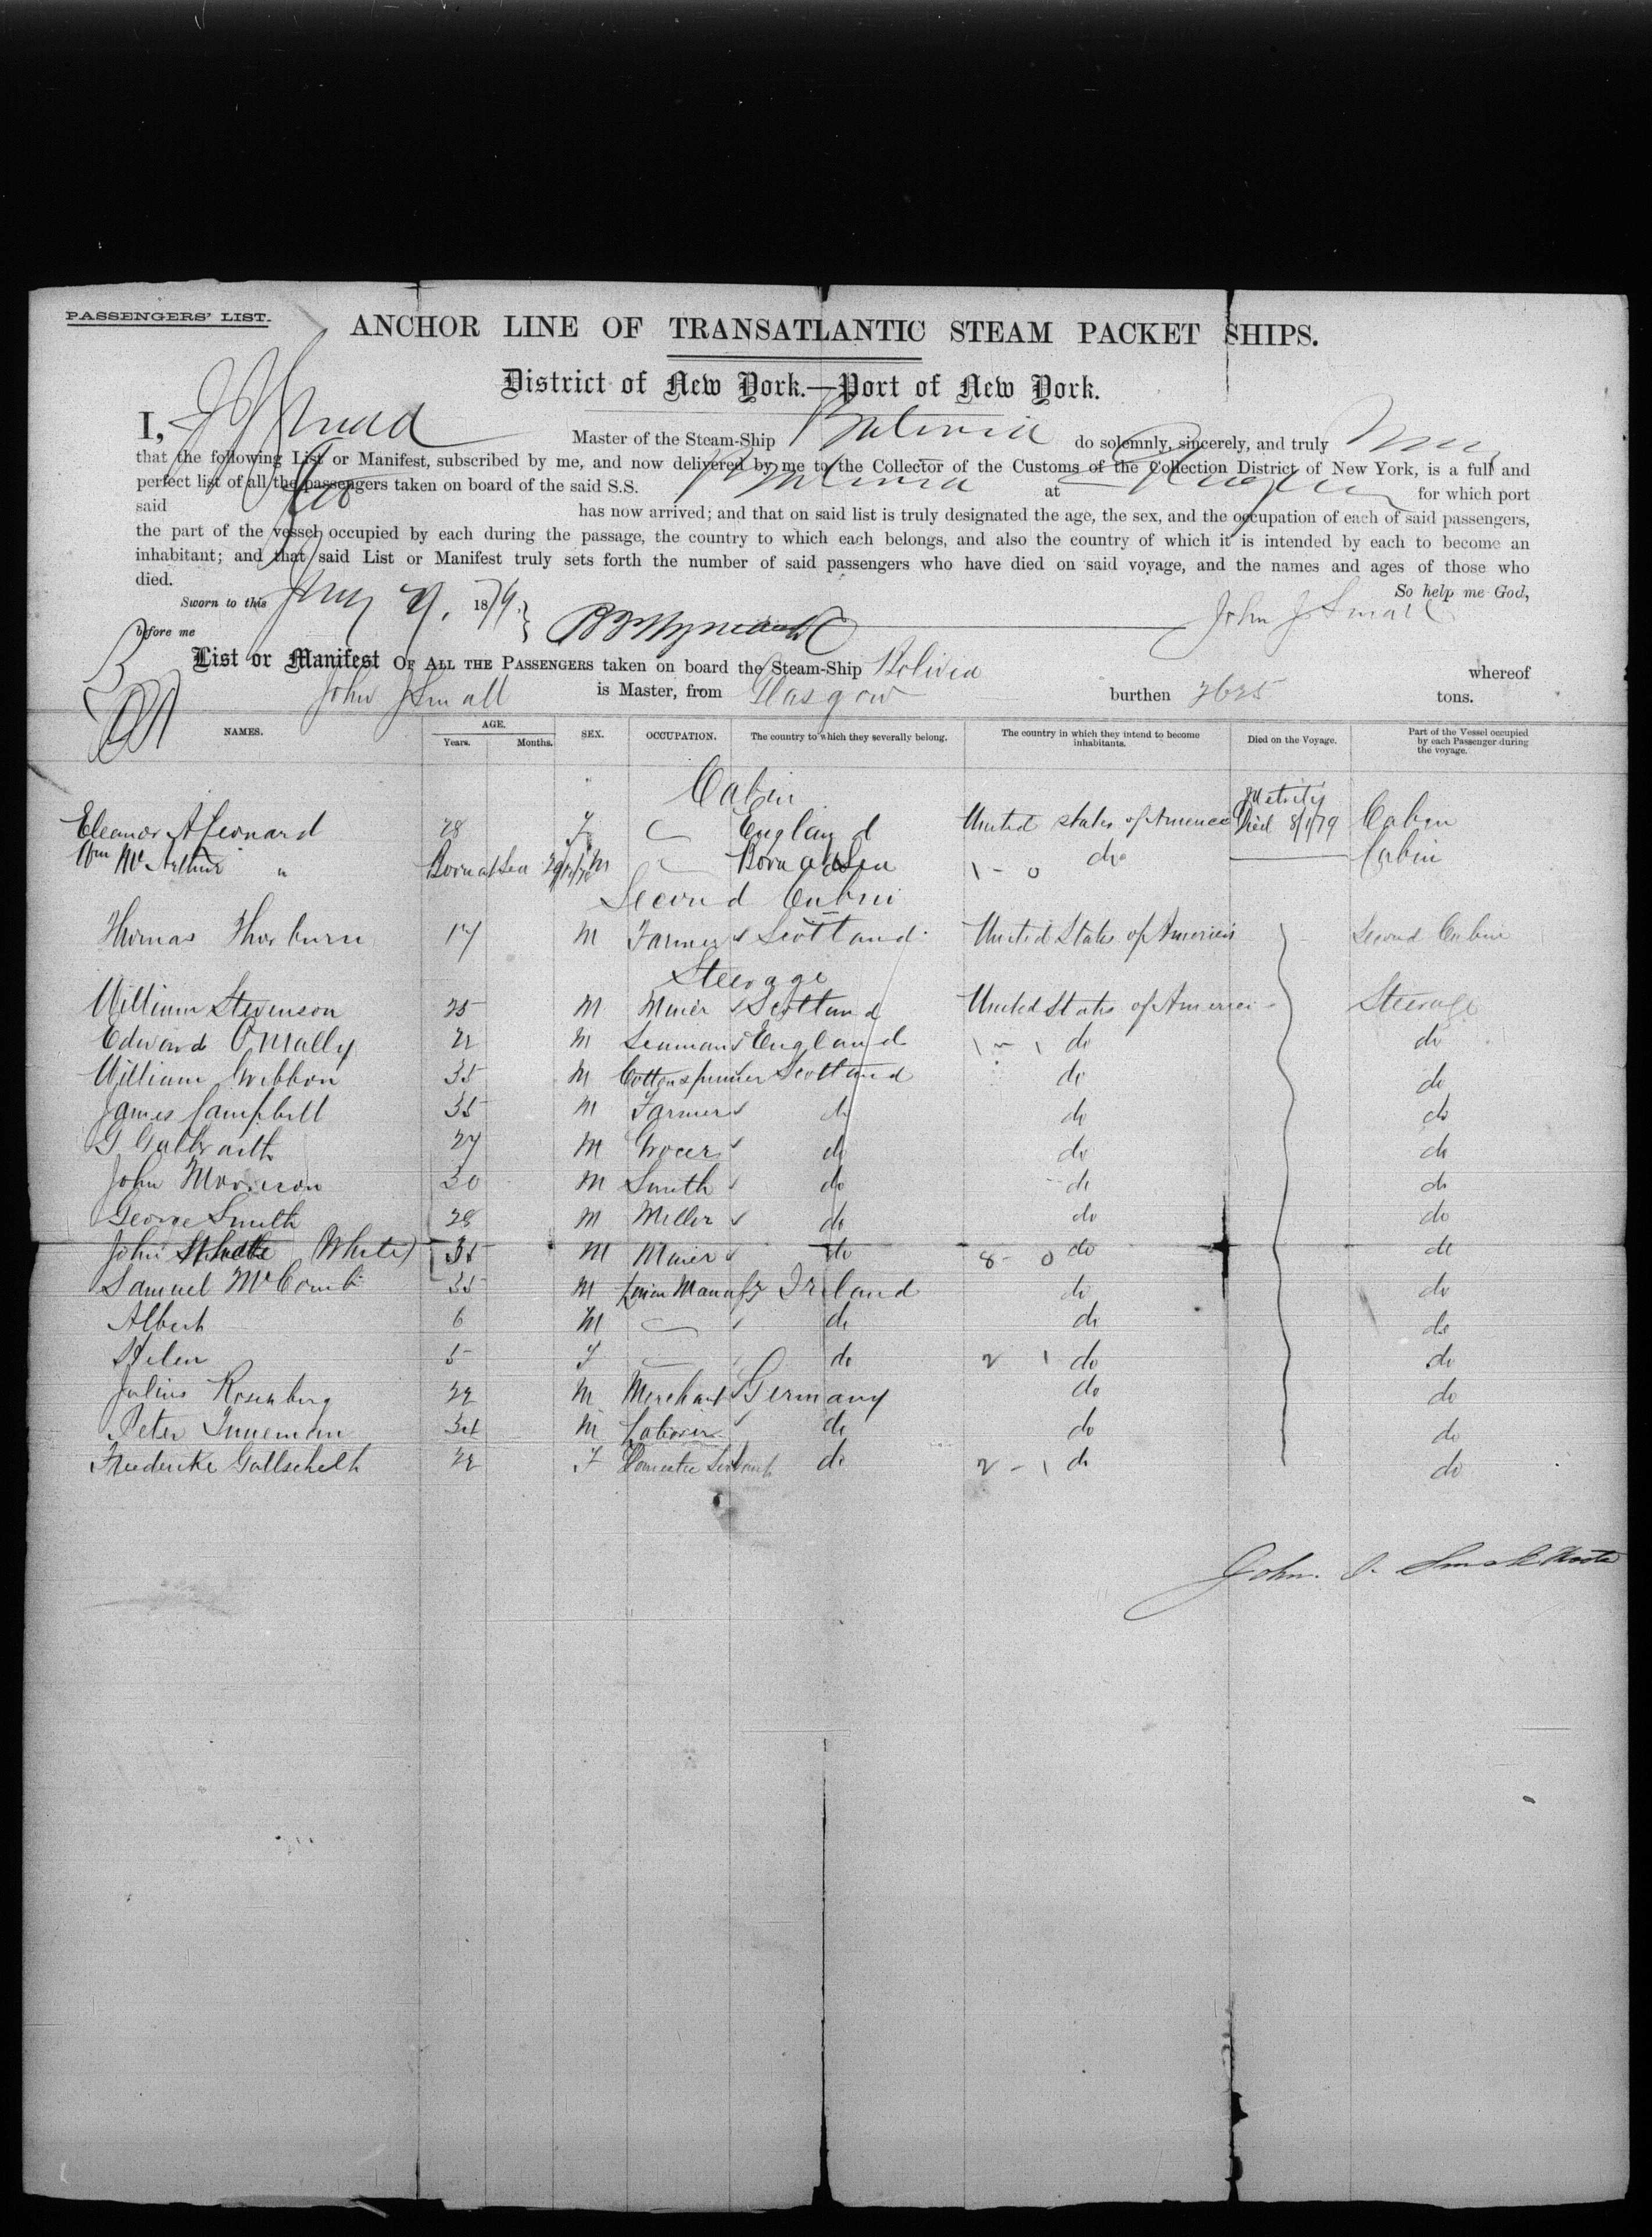 PASSENGERS' LIST.
ANCHOR LINE OF TRANSATLANTIC STEAM PACKET SHIPS.
District of New York.—Port of New York.
I, Master of the Steam-Ship Bolivia do solemnly, sincerely, and truly
that the following List or Manifest, subscribed by me, and now delivered by me to the Collector of the Customs of the Collection District of New York, is a full and
perfect list of all the passengers taken on board of the said S.S. Bolivia at for which port
said has now arrived; and that on said list is truly designated the age, the sex, and the occupation of each of said passengers,
the part of the vessel occupied by each during the passage, the country to which each belongs, and also the country of which it is intended by each to become an
inhabitant; and that said List or Manifest truly sets forth the number of said passengers who have died on said voyage, and the names and ages of those who
died. So help me God,
Sworn to this 1879. John J Small
before me
List or Manifest OF ALL THE PASSENGERS taken on board the Steam-Ship Bolivia whereof
John J Small is Master, from Glasgow burthen 2625 tons.
NAMES. AGE. Years. Months. SEX. OCCUPATION. The country to which they severally belong. The country in which they intend to become inhabitants. Died on the Voyage. Part of the Vessel occupied by each Passenger during the voyage.
Cabin
Eleanor A Leonard 28 F England United States of America Died 8/1/79 Cabin
Wm McArthur " Born at Sea M Born at Sea 1 - 0 do Cabin
Second Cabin
Thomas Thorburn 17 M Farmer Scotland United States of America Second Cabin
Steerage
William Stevenson 25 M Miner Scotland United States of America Steerage
Edward O'Mally 22 M Seaman England 1 - 1 do do
William Gribbon 35 M Cottonspinner Scotland do do
James Campbell 35 M Farmer do do do
G Galbraith 27 M Grocer do do do
John Morrison 30 M Smith do do do
George Smith 28 M Miller do do do
John (White) 35 M Miner do 8 - 0 do do
Samuel McComb 35 M Linen Manafr Ireland do do
Albert 6 M do do do
Helen 5 F do 2 1 do do
Julius Rosenberg 22 M Merchant Germany do do
Peter 34 M Laborer do do do
Frederike Gottschelk 22 F Domestic Servant do 2 - 1 do do
John J. Small Master